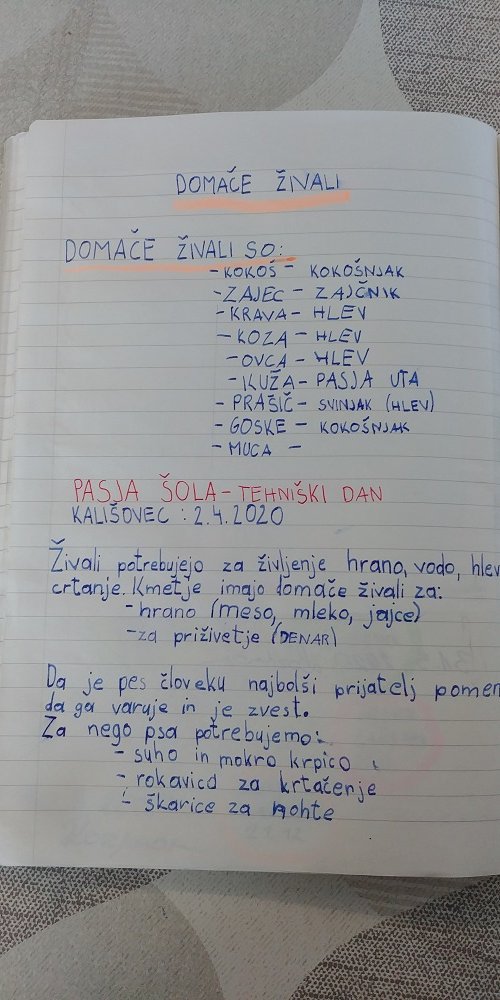 DOMAČE ŽIVALI
DOMAČE ŽIVALI SO:
- KOKOŠ - KOKOŠNJAK
- ZAJEC - ZAJČNIK
- KRAVA - HLEV
- KOZA - HLEV
- OVCA - HLEV
- KUŽA - PASJA UTA
- PRAŠIČ - SVINJAK (HLEV)
- GOSKE - KOKOŠNJAK
- MUCA -
PASJA ŠOLA - TEHNIŠKI DAN
KALIŠOVEC : 2.4.2020
Živali potrebujejo za življenje hrano, vodo, hlev
crtanje. Kmetje imajo domače živali za:
- hrano (meso, mleko, jajce)
- za priživetje (DENAR)
Da je pes človeku najbolši prijatelj pomen
da ga varuje in je zvest.
Za nego psa potrebujemo:
- suho in mokro krpico
- rokavico za krtačenje
- škarice za nohte